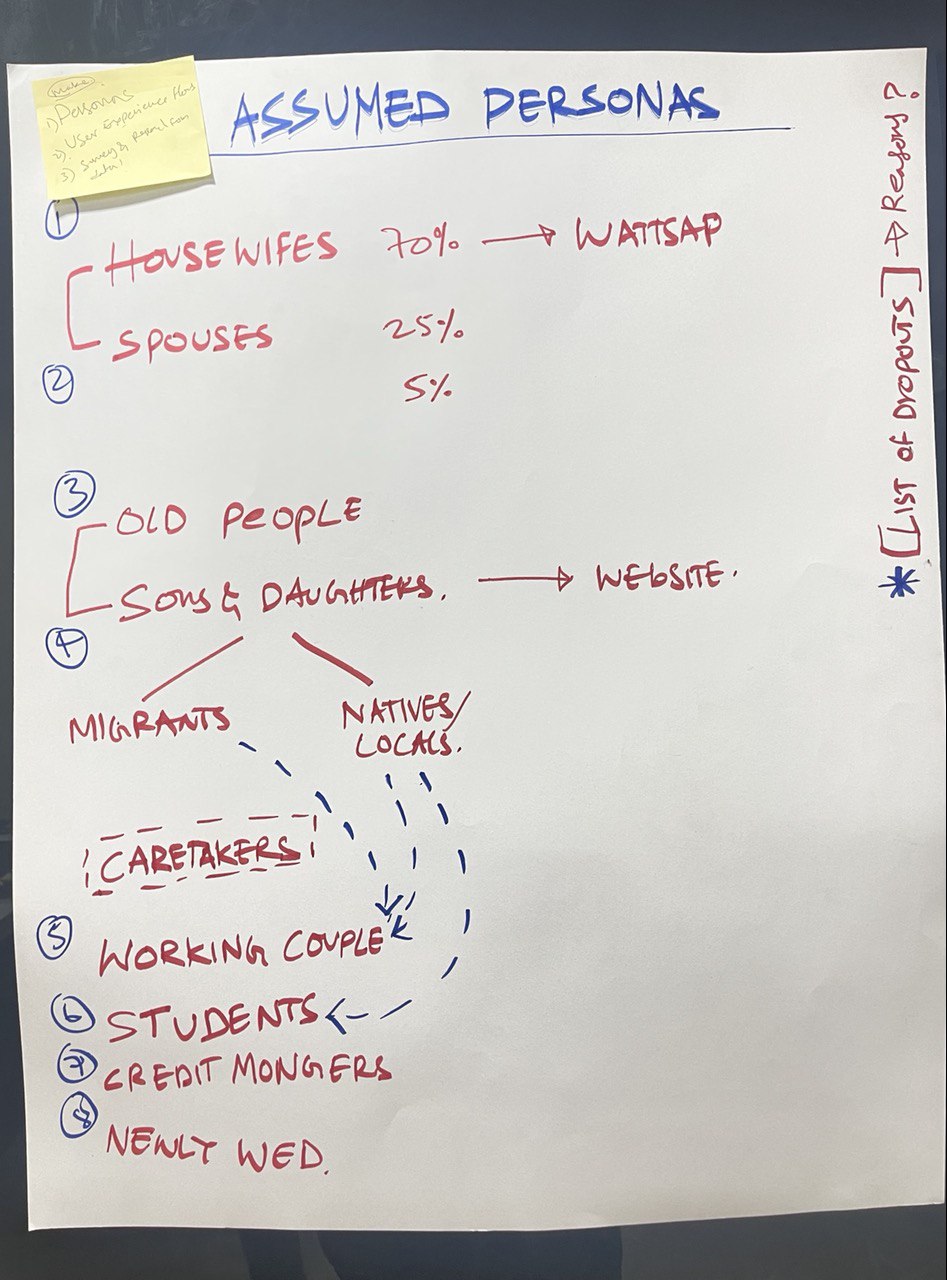 make
1) Personas
2) User Experience flow
3) Survey & from
data!
ASSUMED PERSONAS
1
HOUSEWIFES 70% → WATTSAP
SPOUSES 25%
2
5%
3
OLD PEOPLE
SONS & DAUGHTERS. → WEBSITE.
4
MIGRANTS NATIVES/
LOCALS.
CARETAKERS
5
WORKING COUPLE
6 STUDENTS
7 CREDIT MONGERS
8
NEWLY WED.
* [LIST OF DROPOUTS] → Reasons?